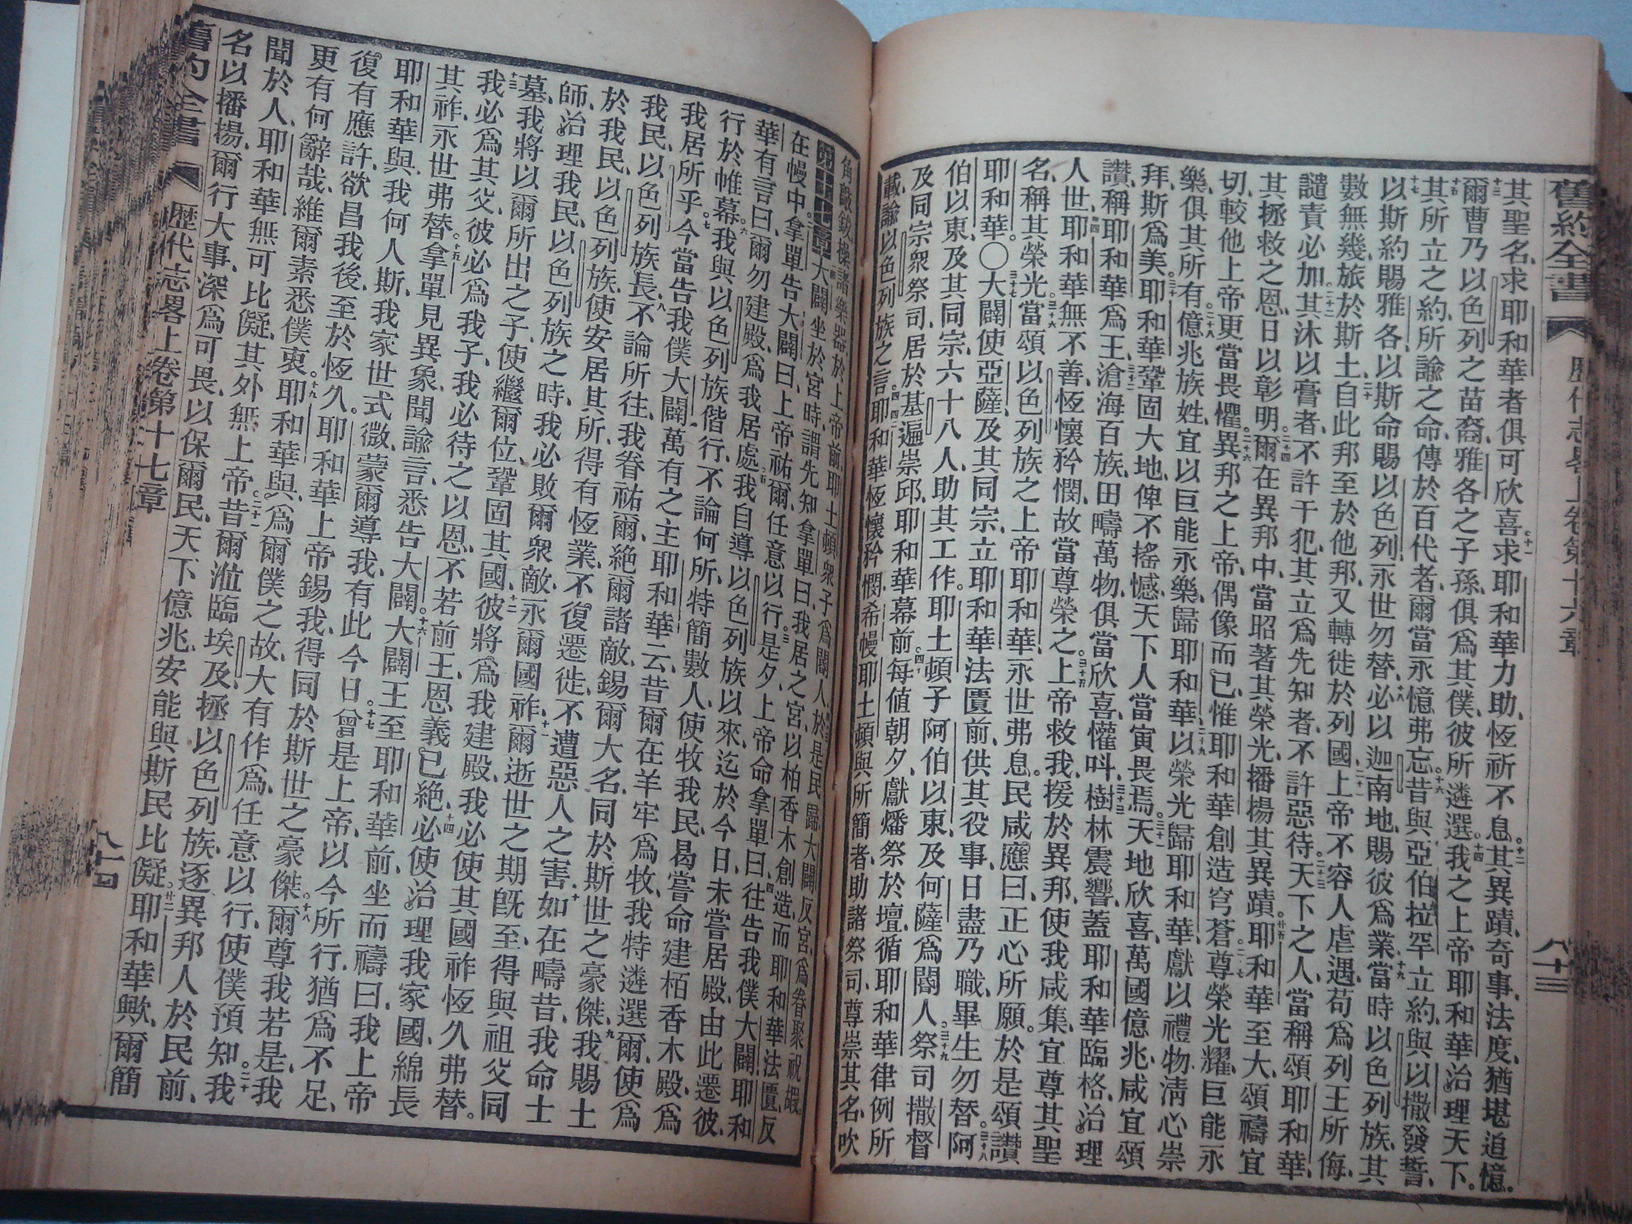 舊約全書 歷代志畧上卷第十六章 八十三
其聖名、求耶和華者俱可欣喜、求耶和華力助、恆祈不息。其異蹟奇事法度、猶堪追憶。
爾曹乃以色列之苗裔、雅各之子孫、俱爲其僕、彼所遴選。我之上帝耶和華治理天下。
其所立之約、所諭之命、傳於百代者、爾當永憶弗忘。昔與亞伯拉罕立約、與以撒發誓、
以斯約賜雅各、以斯命賜以色列、永世勿替、必以迦南地、賜彼爲業、當時以色列族、其
數無幾、旅於斯土、自此邦至於他邦、又轉徙於列國、上帝不容人虐遇、苟爲列王所侮、
譴責必加、其沐以膏者、不許干犯、其立爲先知者、不許惡待、天下之人、當稱頌耶和華、
其拯救之恩、日以彰明。爾在異邦中、當昭著其榮光、播揚其異蹟、耶和華至大、頌禱宜
切、較他上帝更當畏懼。異邦之上帝、偶像而已、惟耶和華創造穹蒼、尊榮光耀、巨能永
樂、俱其所有。億兆族姓、宜以巨能永樂、歸耶和華、以榮光歸耶和華、獻以禮物、淸心崇
拜、斯爲美。耶和華鞏固大地、俾不搖憾、天下人當寅畏焉。天地欣喜、萬國億兆、咸宜頌
讚、稱耶和華爲王、滄海百族、田疇萬物、俱當欣喜懽呌、樹林震響、蓋耶和華臨格、治理
人世、耶和華無不善、恆懷矜憫、故當尊榮之。上帝救我、援於異邦、使我咸集、宜尊其聖
名、稱其榮光。當頌以色列族之上帝耶和華、永世弗息。民咸應曰、正心所願。於是頌讚
耶和華。〇大闢使亞薩、及其同宗、立耶和華法匱前、供其役事、日盡乃職、畢生勿替。阿
伯以東、及其同宗六十八人、助其工作。耶土頓子阿伯以東、及何薩爲閽人、祭司撒督
及同宗衆祭司、居於基遍崇邱、耶和華幕前。每值朝夕、獻燔祭於壇、循耶和華律例、所
載諭以色列族之言、耶和華恆懷矜憫、希幔耶土頓、與所簡者、助諸祭司、尊崇其名、吹
角敲鈸、操諸樂器、於上帝前、耶土頓衆子爲閽人、於是民歸、大闢反宮、爲眷聚祝嘏。
第十七章 大闢坐於宮時、謂先知拿單曰、我居之宮、以柏香木創造、而耶和華法匱、反
在幔中。拿單告大闢曰、上帝祐爾、任意以行。是夕、上帝命拿單曰、往告我僕大闢、耶和
華有言曰、爾勿建殿、爲我居處。我自導以色列族以來、迄於今日、未嘗居殿、由此遷彼、
行於帷幕。我與以色列族偕行、不論何所、特簡數人、使牧我民、曷嘗命建栢香木殿、爲
我居所乎。今當告我僕大闢、萬有之主耶和華云、昔爾在羊牢爲牧、我特遴選爾、使爲
我民、以色列族長。不論所往、我眷祐爾、絕爾諸敵、錫爾大名、同於斯世之豪傑。我賜土
於我民、以色列族、使安居其所、得有恆業、不復遷徙、不遭惡人之害、如在疇昔、我命士
師、治理我民、以色列族之時、我必敗爾衆敵、永爾國祚、爾逝世之期旣至、得與祖父同
墓、我將以爾所出之子、使繼爾位、鞏固其國、彼將爲我建殿、我必使其國祚恆久弗替。
我必爲其父、彼必爲我子、我必待之以恩、不若前王、恩義已絕、必使治理我家國、綿長
其祚、永世弗替。拿單見異象、聞諭言、悉告大闢。大闢王至耶和華前、坐而禱曰、我上帝
耶和華與、我何人斯、我家世式微、蒙爾導我、有此今日。曾是上帝、以今所行、猶爲不足、
復有應許、欲昌我後、至於恆久。耶和華上帝錫我、得同於斯世之豪傑、爾尊我若是、我
更有何辭哉、維爾素悉僕衷、耶和華與、爲爾僕之故、大有作爲、任意以行、使僕預知、我
聞於人、耶和華無可比儗、其外無上帝、昔爾涖臨埃及、拯以色列族、逐異邦人於民前、
名以播揚、爾行大事、深爲可畏、以保爾民、天下億兆、安能與斯民比儗、耶和華歟、爾簡
舊約全書 歷代志畧上卷第十七章 八十四